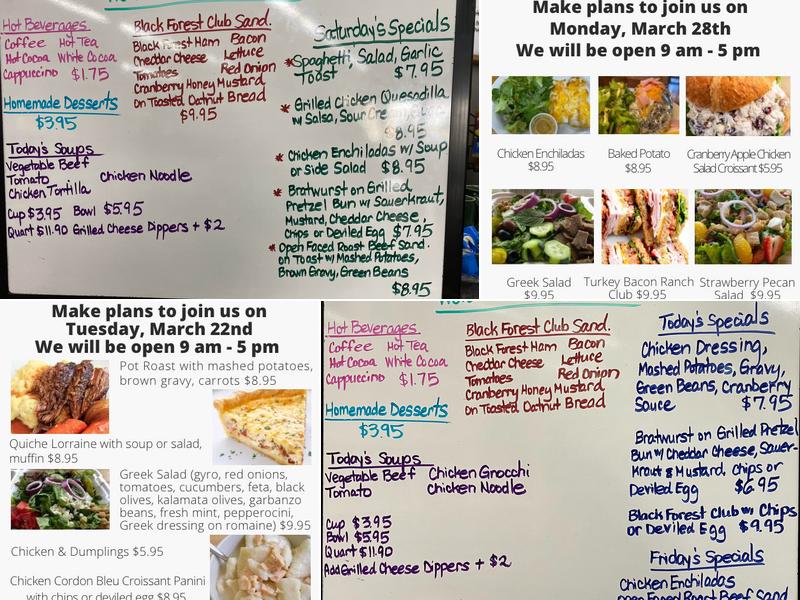 Hot Beverages
Coffee Hot Tea
Hot Cocoa White Cocoa
Cappuccino $1.75
Homemade Desserts
$3.95
Today's Soups
Vegetable Beef
Tomato Chicken Noodle
Chicken Tortilla
Cup $3.95 Bowl $5.95
Quart $11.90 Grilled Cheese Dippers + $2
Black Forest Club Sand.
Black Forest Ham Bacon
Cheddar Cheese Lettuce
Tomatoes Red Onion
Cranberry Honey Mustard
on Toasted Oatnut Bread
$9.95
Saturday's Specials
* Spaghetti, Salad, Garlic
Toast $7.95
* Grilled Chicken Quesadilla
w/ Salsa, Sour
$8.95
* Chicken Enchiladas w/ Soup
or Side Salad $8.95
* Bratwurst on Grilled
Pretzel Bun w/ Sauerkraut,
Mustard, Cheddar Cheese,
Chips or Deviled Egg $7.95
* Open Faced Roast Beef Sand.
on Toast w/ Mashed Potatoes,
Brown Gravy, Green Beans
$8.95
Make plans to join us on
Monday, March 28th
We will be open 9 am - 5 pm
Chicken Enchiladas
$8.95
Baked Potato
$8.95
Cranberry Apple Chicken
Salad Croissant $5.95
Greek Salad
$9.95
Turkey Bacon Ranch
Club $9.95
Strawberry Pecan
Salad $9.95
Make plans to join us on
Tuesday, March 22nd
We will be open 9 am - 5 pm
Pot Roast with mashed potatoes,
brown gravy, carrots $8.95
Quiche Lorraine with soup or salad,
muffin $8.95
Greek Salad (gyro, red onions,
tomatoes, cucumbers, feta, black
olives, kalamata olives, garbanzo
beans, fresh mint, pepperocini,
Greek dressing on romaine) $9.95
Chicken & Dumplings $5.95
Chicken Cordon Bleu Croissant Panini
with chips or deviled egg $8.95
Hot Beverages
Coffee Hot Tea
Hot Cocoa White Cocoa
Cappuccino $1.75
Homemade Desserts
$3.95
Today's Soups
Vegetable Beef Chicken Gnocchi
Tomato Chicken Noodle
Cup $3.95
Bowl $5.95
Quart $11.90
Add Grilled Cheese Dippers + $2
Black Forest Club Sand.
Black Forest Ham Bacon
Cheddar Cheese Lettuce
Tomatoes Red Onion
Cranberry Honey Mustard
on Toasted Oatnut Bread
Today's Specials
Chicken Dressing,
Mashed Potatoes, Gravy,
Green Beans, Cranberry
Sauce $7.95
Bratwurst on Grilled Pretzel
Bun w/ Cheddar Cheese, Sauer-
Kraut & Mustard, Chips or
Deviled Egg $6.95
Black Forest Club w/ Chips
or Deviled Egg $9.95
Friday's Specials
Chicken Enchiladas
Open Faced Roast Beef Sand